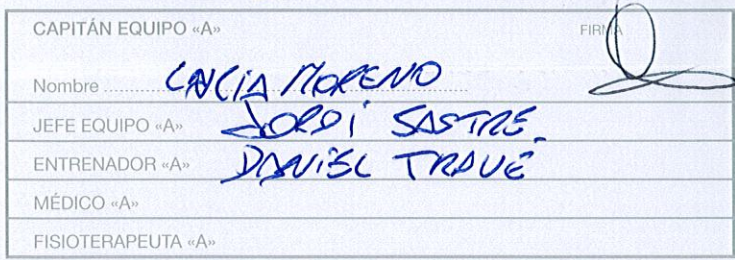 CAPITÁN EQUIPO «A» FIRMA
Nombre MORENO
JEFE EQUIPO «A» JORDI SASTRE
ENTRENADOR «A» DANIEL TRAVÉ
MÉDICO «A»
FISIOTERAPEUTA «A»